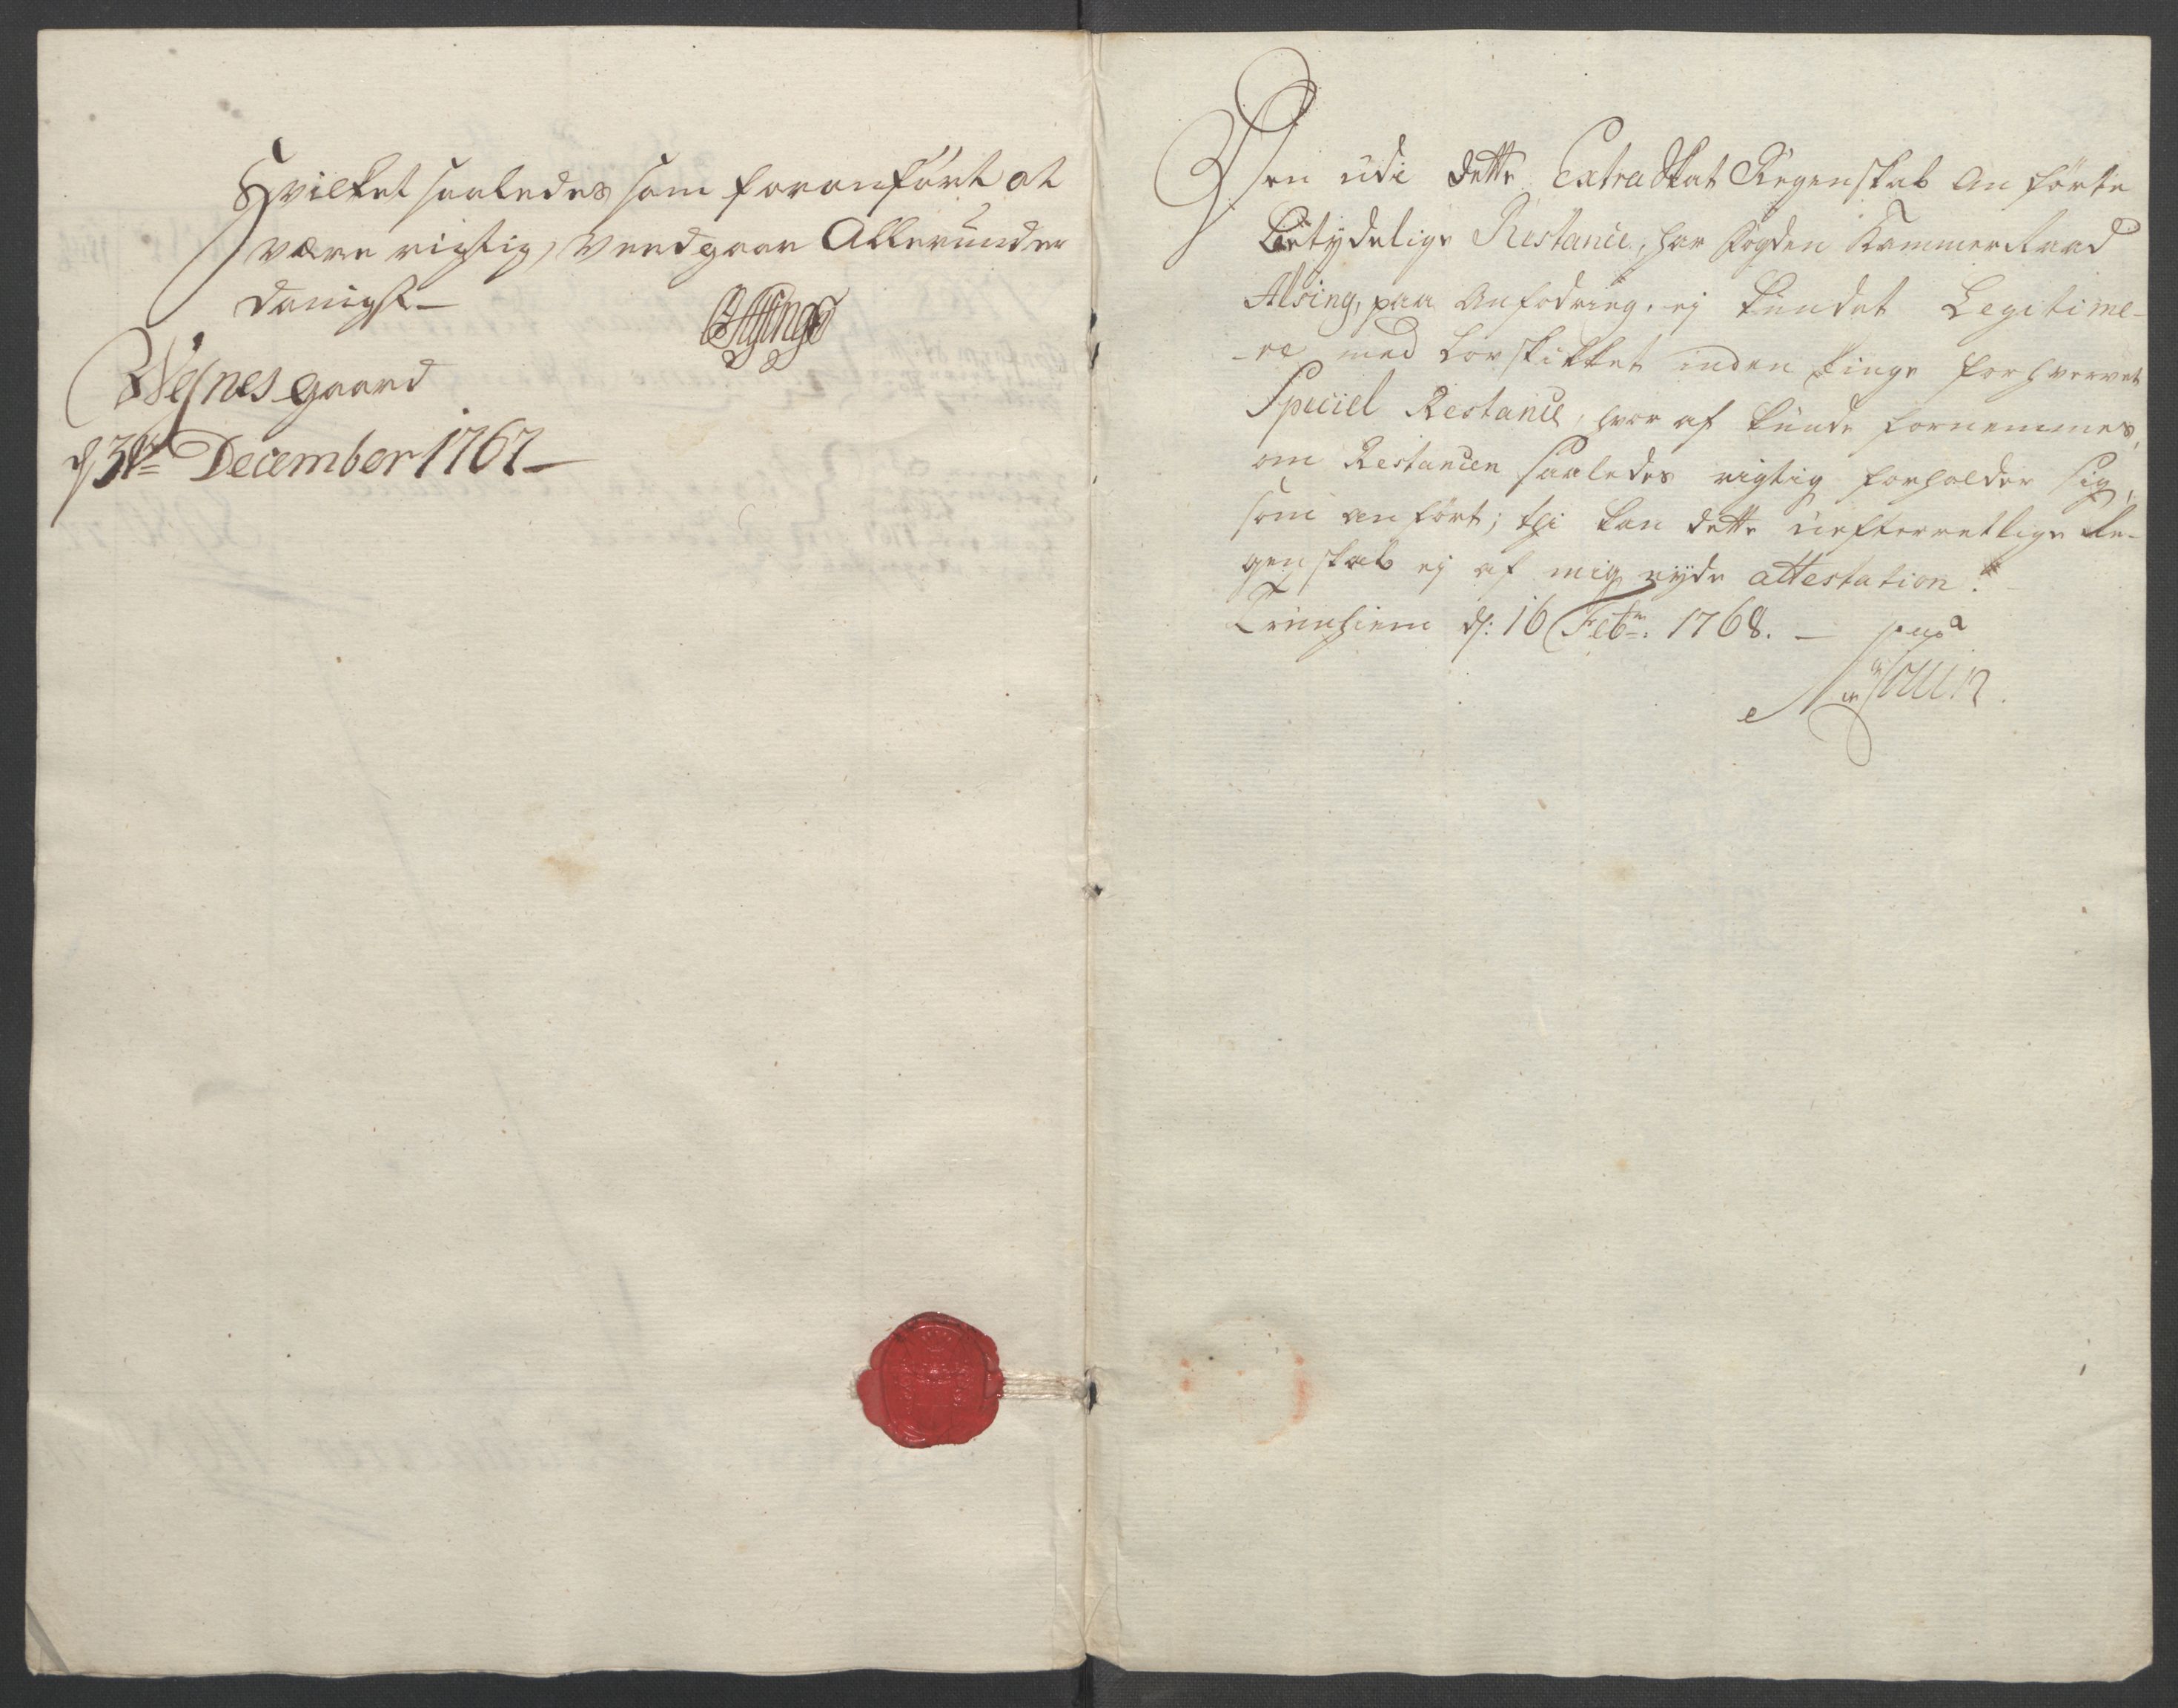 Hvilket saaledes som foranført at
være rigtig, vedgaar Allerunder
danigst
Alsing
Wæsnes gaard
d 31te December 1767
Den udi dette Extra Skat Regenskab anførte
Betydelige Restance, har fogden Kammer Raad
Alsing, paa anfodring, ej kundet Legitime-
-re med Lovskikket inden tinge forhvervet
Speciel Restance, hvor af kunde fornemmes,
om Restancen saaledes rigtig forholder sig,
som anført; thi kan dette uefterretlige Re-
genskab ej af mig nyde attestation.
Trunhiem d: 16 Febr: 1768.